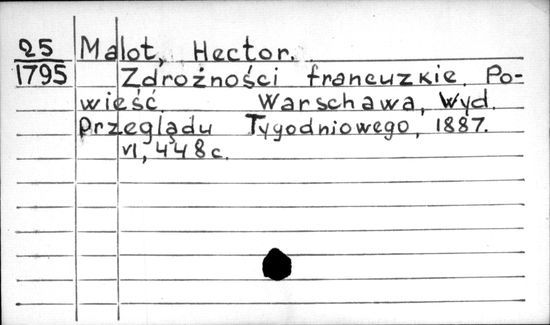 25 Malot, Hector.
1795 Zdrożności francuzkie. Po-
wieść. Warschawa, Wyd.
Przeglądu Tygodniowego, 1887.
VI, 448 c.